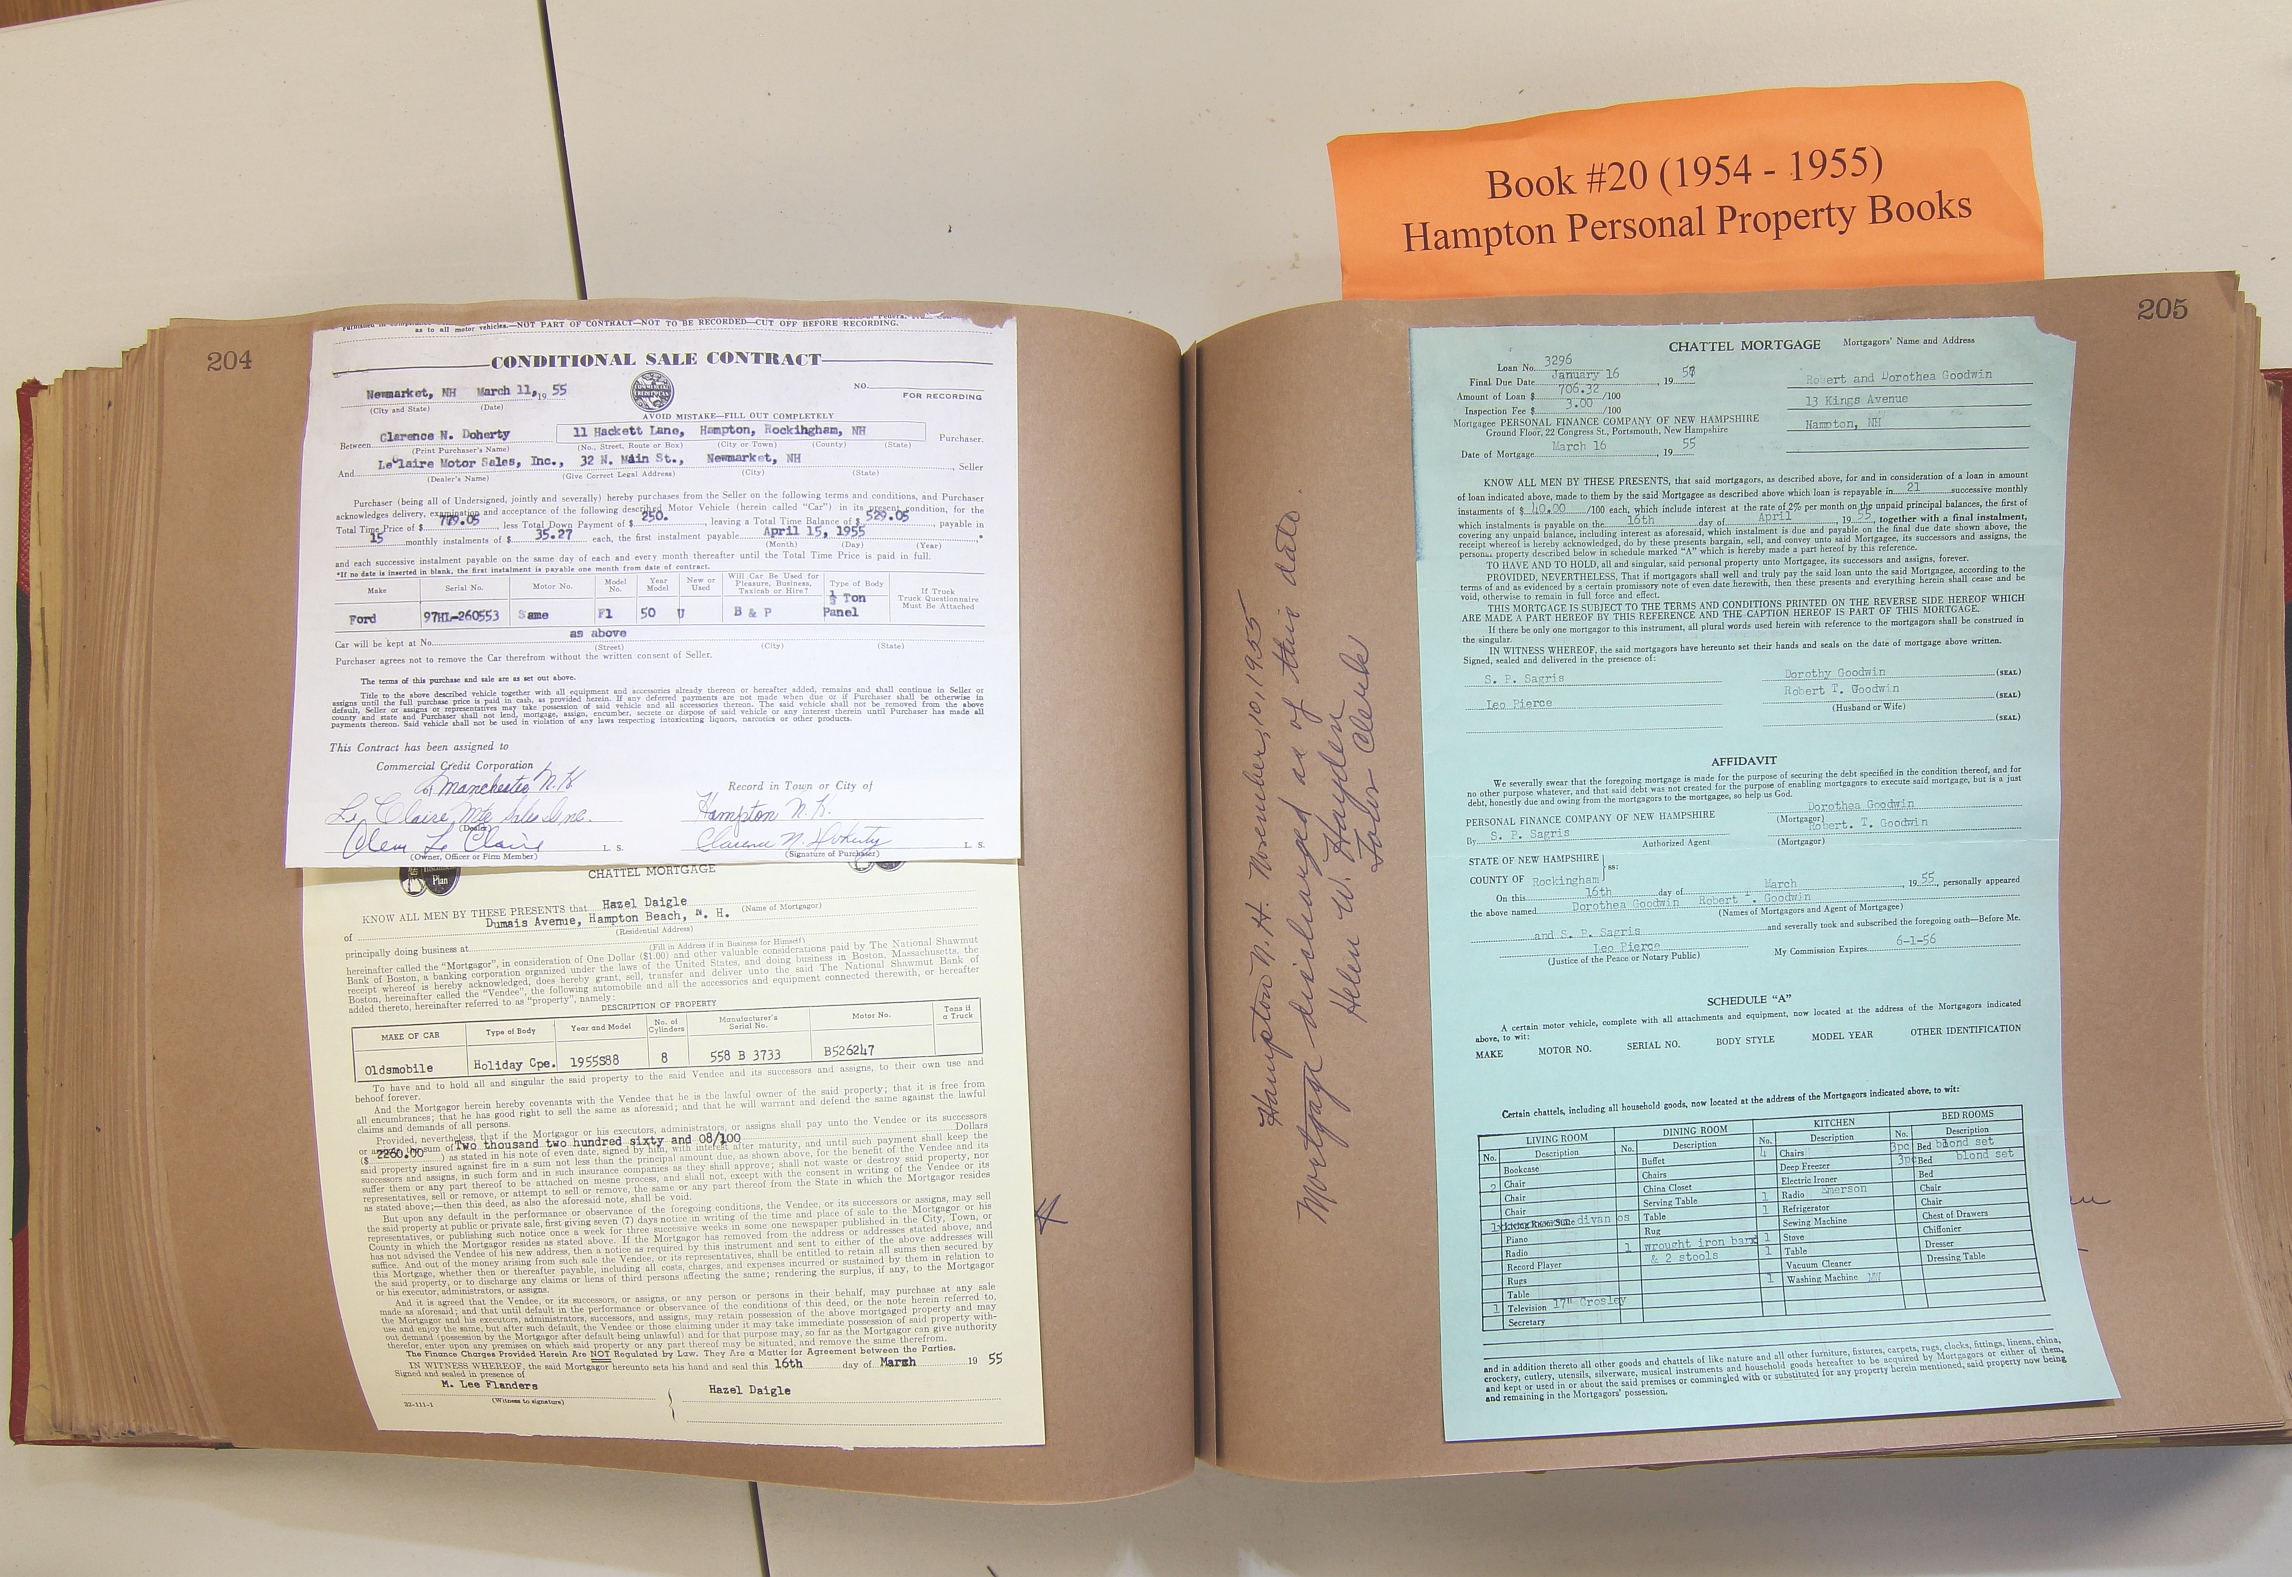 Book #20 (1954 - 1955)
Hampton Personal Property Books
204
as to all motor vehicles.—NOT PART OF CONTRACT—NOT TO BE RECORDED—CUT OFF BEFORE RECORDING.
CONDITIONAL SALE CONTRACT
Newmarket, NH March 11, 19 55
(City and State) (Date)
NO.
FOR RECORDING
AVOID MISTAKE—FILL OUT COMPLETELY
Between Clarence N. Doherty 11 Hackett Lane, Hampton, Rockingham, NH Purchaser.
(Print Purchaser's Name) (No., Street, Route or Box) (City or Town) (County) (State)
And LeClaire Motor Sales, Inc., 32 N. Main St., Newmarket, NH , Seller
(Dealer's Name) (Give Correct Legal Address) (City) (State)
Purchaser (being all of Undersigned, jointly and severally) hereby purchases from the Seller on the following terms and conditions, and Purchaser
acknowledges delivery, examination and acceptance of the following described Motor Vehicle (herein called "Car") in its present condition, for the
Total Time Price of $ 779.05 , less Total Down Payment of $ 250. , leaving a Total Time Balance of $ 529.05 , payable in
15 monthly instalments of $ 35.27 each, the first instalment payable April 15, 1955
(Month) (Day) (Year)
and each successive instalment payable on the same day of each and every month thereafter until the Total Time Price is paid in full.
*If no date is inserted in blank, the first instalment is payable one month from date of contract.
Make Serial No. Motor No. Model No. Year Model New or Used Will Car Be Used for Pleasure, Business, Taxicab or Hire? Type of Body If Truck Truck Questionnaire Must Be Attached
Ford 97HL-260553 Same F1 50 U B & P ½ Ton Panel
Car will be kept at No. as above
(Street) (City) (State)
Purchaser agrees not to remove the Car therefrom without the written consent of Seller.
The terms of this purchase and sale are as set out above.
Title to the above described vehicle together with all equipment and accessories already thereon or hereafter added, remains and shall continue in Seller or
assigns until the full purchase price is paid in cash, as provided herein. If any deferred payments are not made when due or if Purchaser shall be otherwise in
default, Seller or assigns or representatives may take possession of said vehicle and all accessories thereon. The said vehicle shall not be removed from the above
county and state and Purchaser shall not lend, mortgage, assign, encumber, secrete or dispose of said vehicle or any interest therein until Purchaser has made all
payments thereon. Said vehicle shall not be used in violation of any laws respecting intoxicating liquors, narcotics or other products.
This Contract has been assigned to
Commercial Credit Corporation
of Manchester N.H.
Record in Town or City of
Le Claire Mtr Sales Inc. Hampton N.H.
(Dealer)
Clem Le Claire L. S. Clarence N. Doherty L. S.
(Owner, Officer or Firm Member) (Signature of Purchaser)
Plan
CHATTEL MORTGAGE
KNOW ALL MEN BY THESE PRESENTS that Hazel Daigle
(Name of Mortgagor)
of Dumais Avenue, Hampton Beach, N. H.
(Residential Address)
principally doing business at
(Fill in Address if in Business for Himself)
hereinafter called the "Mortgagor", in consideration of One Dollar ($1.00) and other valuable considerations paid by The National Shawmut
Bank of Boston, a banking corporation organized under the laws of the United States, and doing business in Boston, Massachusetts, the
receipt whereof is hereby acknowledged, does hereby grant, sell, transfer and deliver unto the said The National Shawmut Bank of
Boston, hereinafter called the "Vendee", the following automobile and all the accessories and equipment connected therewith, or hereafter
added thereto, hereinafter referred to as "property", namely:
DESCRIPTION OF PROPERTY
MAKE OF CAR Type of Body Year and Model No. of Cylinders Manufacturer's Serial No. Motor No. Tons if a Truck
Oldsmobile Holiday Cpe. 1955S88 8 558 B 3733 B526247
To have and to hold all and singular the said property to the said Vendee and its successors and assigns, to their own use and
behoof forever.
And the Mortgagor herein hereby covenants with the Vendee that he is the lawful owner of the said property; that it is free from
all encumbrances; that he has good right to sell the same as aforesaid; and that he will warrant and defend the same against the lawful
claims and demands of all persons.
Provided, nevertheless, that if the Mortgagor or his executors, administrators, or assigns shall pay unto the Vendee or its successors
or assigns the sum of Two thousand two hundred sixty and 08/100 Dollars
($ 2260.00 ) as stated in his note of even date, signed by him, with interest after maturity, and until such payment shall keep the
said property insured against fire in a sum not less than the principal amount due, as shown above, for the benefit of the Vendee and its
successors and assigns, in such form and in such insurance companies as they shall approve; shall not waste or destroy said property, nor
suffer them or any part thereof to be attached on mesne process, and shall not, except with the consent in writing of the Vendee or its
representatives, sell or remove, or attempt to sell or remove, the same or any part thereof from the State in which the Mortgagor resides
as stated above;—then this deed, as also the aforesaid note, shall be void.
But upon any default in the performance or observance of the foregoing conditions, the Vendee, or its successors or assigns, may sell
the said property at public or private sale, first giving seven (7) days notice in writing of the time and place of sale to the Mortgagor or his
representatives, or publishing such notice once a week for three successive weeks in some one newspaper published in the City, Town, or
County in which the Mortgagor resides as stated above. If the Mortgagor has removed from the address or addresses stated above, and
has not advised the Vendee of his new address, then a notice as required by this instrument and sent to either of the above addresses will
suffice. And out of the money arising from such sale the Vendee, or its representatives, shall be entitled to retain all sums then secured by
this Mortgage, whether then or thereafter payable, including all costs, charges, and expenses incurred or sustained by them in relation to
the said property, or to discharge any claims or liens of third persons affecting the same; rendering the surplus, if any, to the Mortgagor
or his executor, administrators, or assigns.
And it is agreed that the Vendee, or its successors, or assigns, or any person or persons in their behalf, may purchase at any sale
made as aforesaid; and that until default in the performance or observance of the conditions of this deed, or the note herein referred to,
the Mortgagor and his executors, administrators, successors, and assigns, may retain possession of the above mortgaged property and may
use and enjoy the same, but after such default, the Vendee or those claiming under it may take immediate possession of said property with-
out demand (possession by the Mortgagor after default being unlawful) and for that purpose may, so far as the Mortgagor can give authority
therefor, enter upon any premises on which said property or any part thereof may be situated, and remove the same therefrom.
The Finance Charges Provided Herein Are NOT Regulated by Law. They Are a Matter for Agreement between the Parties.
IN WITNESS WHEREOF, the said Mortgagor hereunto sets his hand and seal this 16th day of March 19 55
Signed and sealed in presence of
M. Lee Flanders Hazel Daigle
(Witness to signature)
22-111-1
205
Hampton N.H. November, 10, 1955
Mortgage discharged as of this date.
Helen W. Hayden
Town Clerk
CHATTEL MORTGAGE Mortgagors' Name and Address
Loan No. 3296
Final Due Date January 16 , 19 57
Amount of Loan $ 706.32 /100
Inspection Fee $ 3.00 /100
Robert and Dorothea Goodwin
13 Kings Avenue
Hampton, NH
Mortgagee PERSONAL FINANCE COMPANY OF NEW HAMPSHIRE
Ground Floor, 22 Congress St., Portsmouth, New Hampshire
Date of Mortgage March 16 , 19 55
KNOW ALL MEN BY THESE PRESENTS, that said mortgagors, as described above, for and in consideration of a loan in amount
of loan indicated above, made to them by the said Mortgagee as described above which loan is repayable in 21 successive monthly
instalments of $ 40.00 /100 each, which include interest at the rate of 2% per month on the unpaid principal balances, the first of
which instalments is payable on the 16th day of April , 19 55, together with a final instalment,
covering any unpaid balance, including interest as aforesaid, which instalment is due and payable on the final due date shown above, the
receipt whereof is hereby acknowledged, do by these presents bargain, sell, and convey unto said Mortgagee, its successors and assigns, the
personal property described below in schedule marked "A" which is hereby made a part hereof by this reference.
TO HAVE AND TO HOLD, all and singular, said personal property unto Mortgagee, its successors and assigns, forever.
PROVIDED, NEVERTHELESS, That if mortgagors shall well and truly pay the said loan unto the said Mortgagee, according to the
terms of and as evidenced by a certain promissory note of even date herewith, then these presents and everything herein shall cease and be
void, otherwise to remain in full force and effect.
THIS MORTGAGE IS SUBJECT TO THE TERMS AND CONDITIONS PRINTED ON THE REVERSE SIDE HEREOF WHICH
ARE MADE A PART HEREOF BY THIS REFERENCE AND THE CAPTION HEREOF IS PART OF THIS MORTGAGE.
If there be only one mortgagor to this instrument, all plural words used herein with reference to the mortgagors shall be construed in
the singular.
IN WITNESS WHEREOF, the said mortgagors have hereunto set their hands and seals on the date of mortgage above written.
Signed, sealed and delivered in the presence of:
S. P. Sagris Dorothy Goodwin (SEAL)
Leo Pierce Robert T. Goodwin (SEAL)
(Husband or Wife)
(SEAL)
AFFIDAVIT
We severally swear that the foregoing mortgage is made for the purpose of securing the debt specified in the condition thereof, and for
no other purpose whatever, and that said debt was not created for the purpose of enabling mortgagors to execute said mortgage, but is a just
debt, honestly due and owing from the mortgagors to the mortgagee, so help us God.
PERSONAL FINANCE COMPANY OF NEW HAMPSHIRE Dorothea Goodwin
(Mortgagor)
By S. P. Sagris Robert. T. Goodwin
Authorized Agent (Mortgagor)
STATE OF NEW HAMPSHIRE
ss:
COUNTY OF Rockingham
On this 16th day of March , 19 55, personally appeared
the above named Dorothea Goodwin Robert T. Goodwin
(Names of Mortgagors and Agent of Mortgagee)
and S. P. Sagris and severally took and subscribed the foregoing oath—Before Me.
Leo Pierce My Commission Expires 6-1-56
(Justice of the Peace or Notary Public)
SCHEDULE "A"
A certain motor vehicle, complete with all attachments and equipment, now located at the address of the Mortgagors indicated
above, to wit:
MAKE MOTOR NO. SERIAL NO. BODY STYLE MODEL YEAR OTHER IDENTIFICATION
Certain chattels, including all household goods, now located at the address of the Mortgagors indicated above, to wit:
LIVING ROOM DINING ROOM KITCHEN BED ROOMS
No. Description No. Description No. Description No. Description
Bookcase Buffet 4 Chairs 3pc Bed blond set
2 Chair Chairs Deep Freezer 3pc Bed blond set
Chair China Closet Electric Ironer Bed
Chair Serving Table 1 Radio Emerson Chair
1 Living Room Suite divan os Table 1 Refrigerator Chair
Piano Rug Sewing Machine Chest of Drawers
Radio 1 wrought iron bar 1 Stove Chiffonier
Record Player & 2 stools 1 Table Dresser
Rugs Vacuum Cleaner Dressing Table
Table 1 Washing Machine
1 Television 17" Crosley
Secretary
and in addition thereto all other goods and chattels of like nature and all other furniture, fixtures, carpets, rugs, clocks, fittings, linens, china,
crockery, cutlery, utensils, silverware, musical instruments and household goods hereafter to be acquired by Mortgagors or either of them,
and kept or used in or about the said premises or commingled with or substituted for any property herein mentioned, said property now being
and remaining in the Mortgagors' possession.